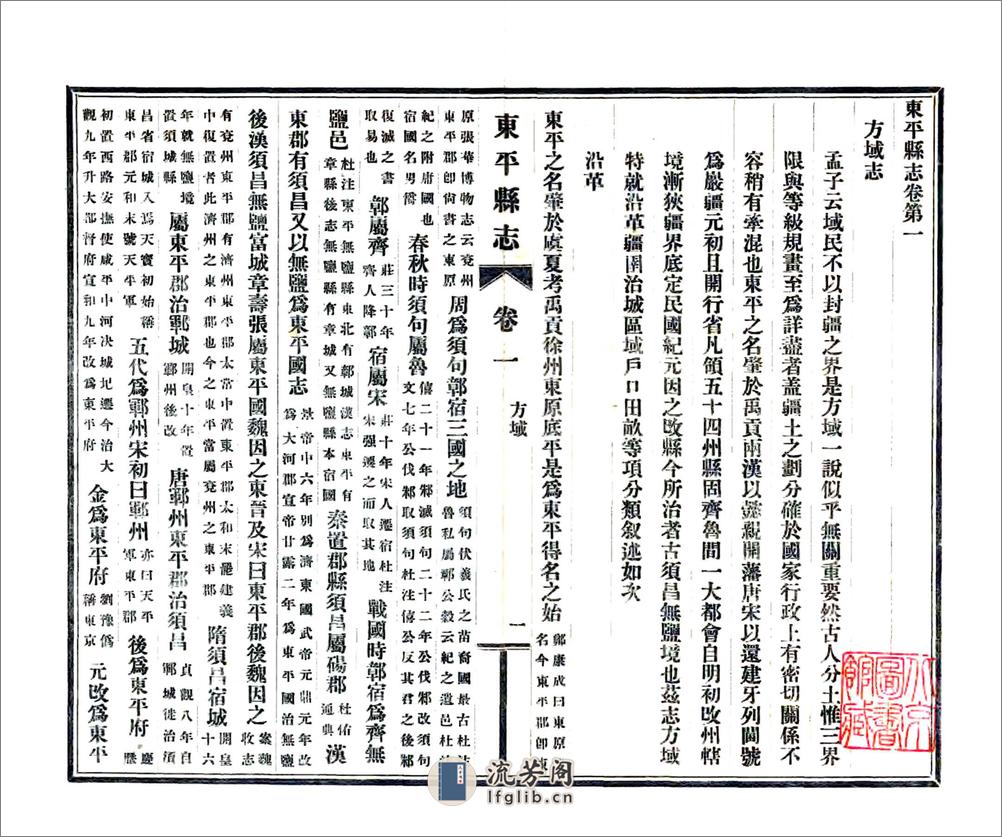 東平縣志卷第一
方域志
孟子云域民不以封疆之界是方域一說似乎無關重要然古人分土惟三界
限與等級規畫至爲詳盡者蓋疆土之劃分確於國家行政上有密切關係不
容稍有牽混也東平之名肇於禹貢兩漢以懿親開藩唐宋以還建牙列閫號
爲嚴疆元初且開行省凡領五十四州縣固齊魯間一大都會自明初改州轄
境漸狹疆界底定民國紀元因之改縣今所治者古須昌無鹽境也茲志方域
特就沿革疆圉治城區域戶口田畝等項分類叙述如次
沿革
東平之名肇於虞夏考禹貢徐州東原底平是爲東平得名之始
鄭康成曰東原
名今東平郡卽東
東平縣志
卷一
方域
一
原張華博物志云兗州
東平郡卽尙書之東原
周爲須句鄣宿三國之地
須句伏羲氏之苗裔國最古杜
魯私屬鄣公穀云紀之遺邑杜
紀之附庸國也
宿國名男爵
春秋時須句屬魯
僖二十一年邾滅須句二十二年公伐邾改須句
文七年公伐邾取須句杜注僖公反其君之後邾
復滅之書
取易也
鄣屬齊
莊三十年
齊人降鄣
宿屬宋
莊十年宋人遷宿杜注
宋强遷之而取其地
戰國時鄣宿爲齊無
鹽邑
杜注東平無鹽縣東北有鄣城漢志東平有
章縣後志無鹽縣有章城又無鹽縣本宿國
秦置郡縣須昌屬碭郡
杜佑
通典
漢
東郡有須昌又以無鹽爲東平國志
景帝中六年別爲濟東國武帝元鼎元年改
爲大河郡宣帝甘露二年爲東平國治無鹽
後漢須昌無鹽富城章壽張屬東平國魏因之東晉及宋曰東平郡後魏因之
案魏
收志
有兗州東平郡有濟州東平郡太常中置東平郡太和末罷建義
中復置者此濟州之東平郡也今之東平當屬兗州之東平郡
隋須昌宿城
開皇
十六
年就無鹽境
置須城縣
屬東平郡治鄆城
開皇十年置
鄆州後改
唐鄆州東平郡治須昌
貞觀八年自
鄆城徙治須
昌省宿城入焉天寶初始爲
東平郡元和末號天平軍
五代爲鄆州宋初曰鄆州
亦曰天平
軍東平郡
後爲東平府
慶
曆
初置西路安撫使咸平中河決城圮遷今治大
觀九年升大都督府宣和九年改爲東平府
金爲東平府
劉豫僞
稱東京
元改爲東平
北京
圖書
館藏
流芳阁
lfglib.cn